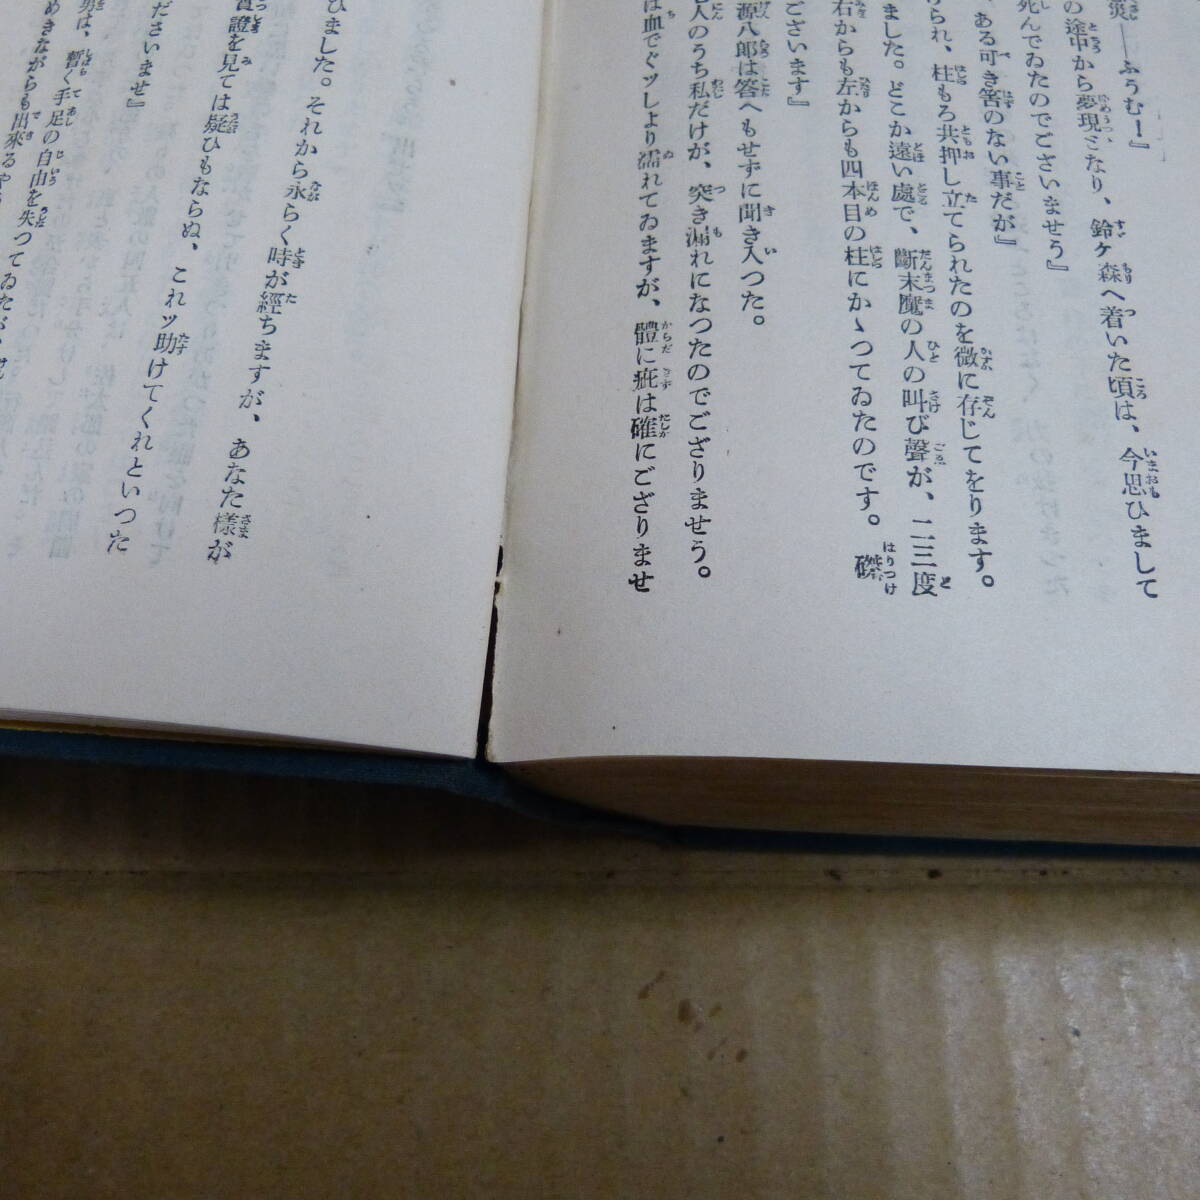 災――ふうむ！』
の途中から夢現となり、鈴ヶ森へ着いた頃は、今思ひまして
死んでゐたのでございませう』
、ある可き筈のない事だが』
けられ、柱もろ共押し立てられたのを微に存じてをります。
ました。どこか遠い處で、斷末魔の人の叫び聲が、二三度
右からも左からも四本目の柱にかゝつてゐたのです。磔
ございます』
源八郎は答へもせずに聞き入つた。
人のうち私だけが、突き漏れになつたのでござりませう。
は血でぐッしより濡れてゐますが、體に疵は確にござりませ
ひました。それから永らく時が經ちますが、あなた様が
證を見ては疑ひもならぬ、これッ助けてくれといつた
ださいませ』
男は、暫く手足の自由を失つてゐたが、
めきながらも出來るや